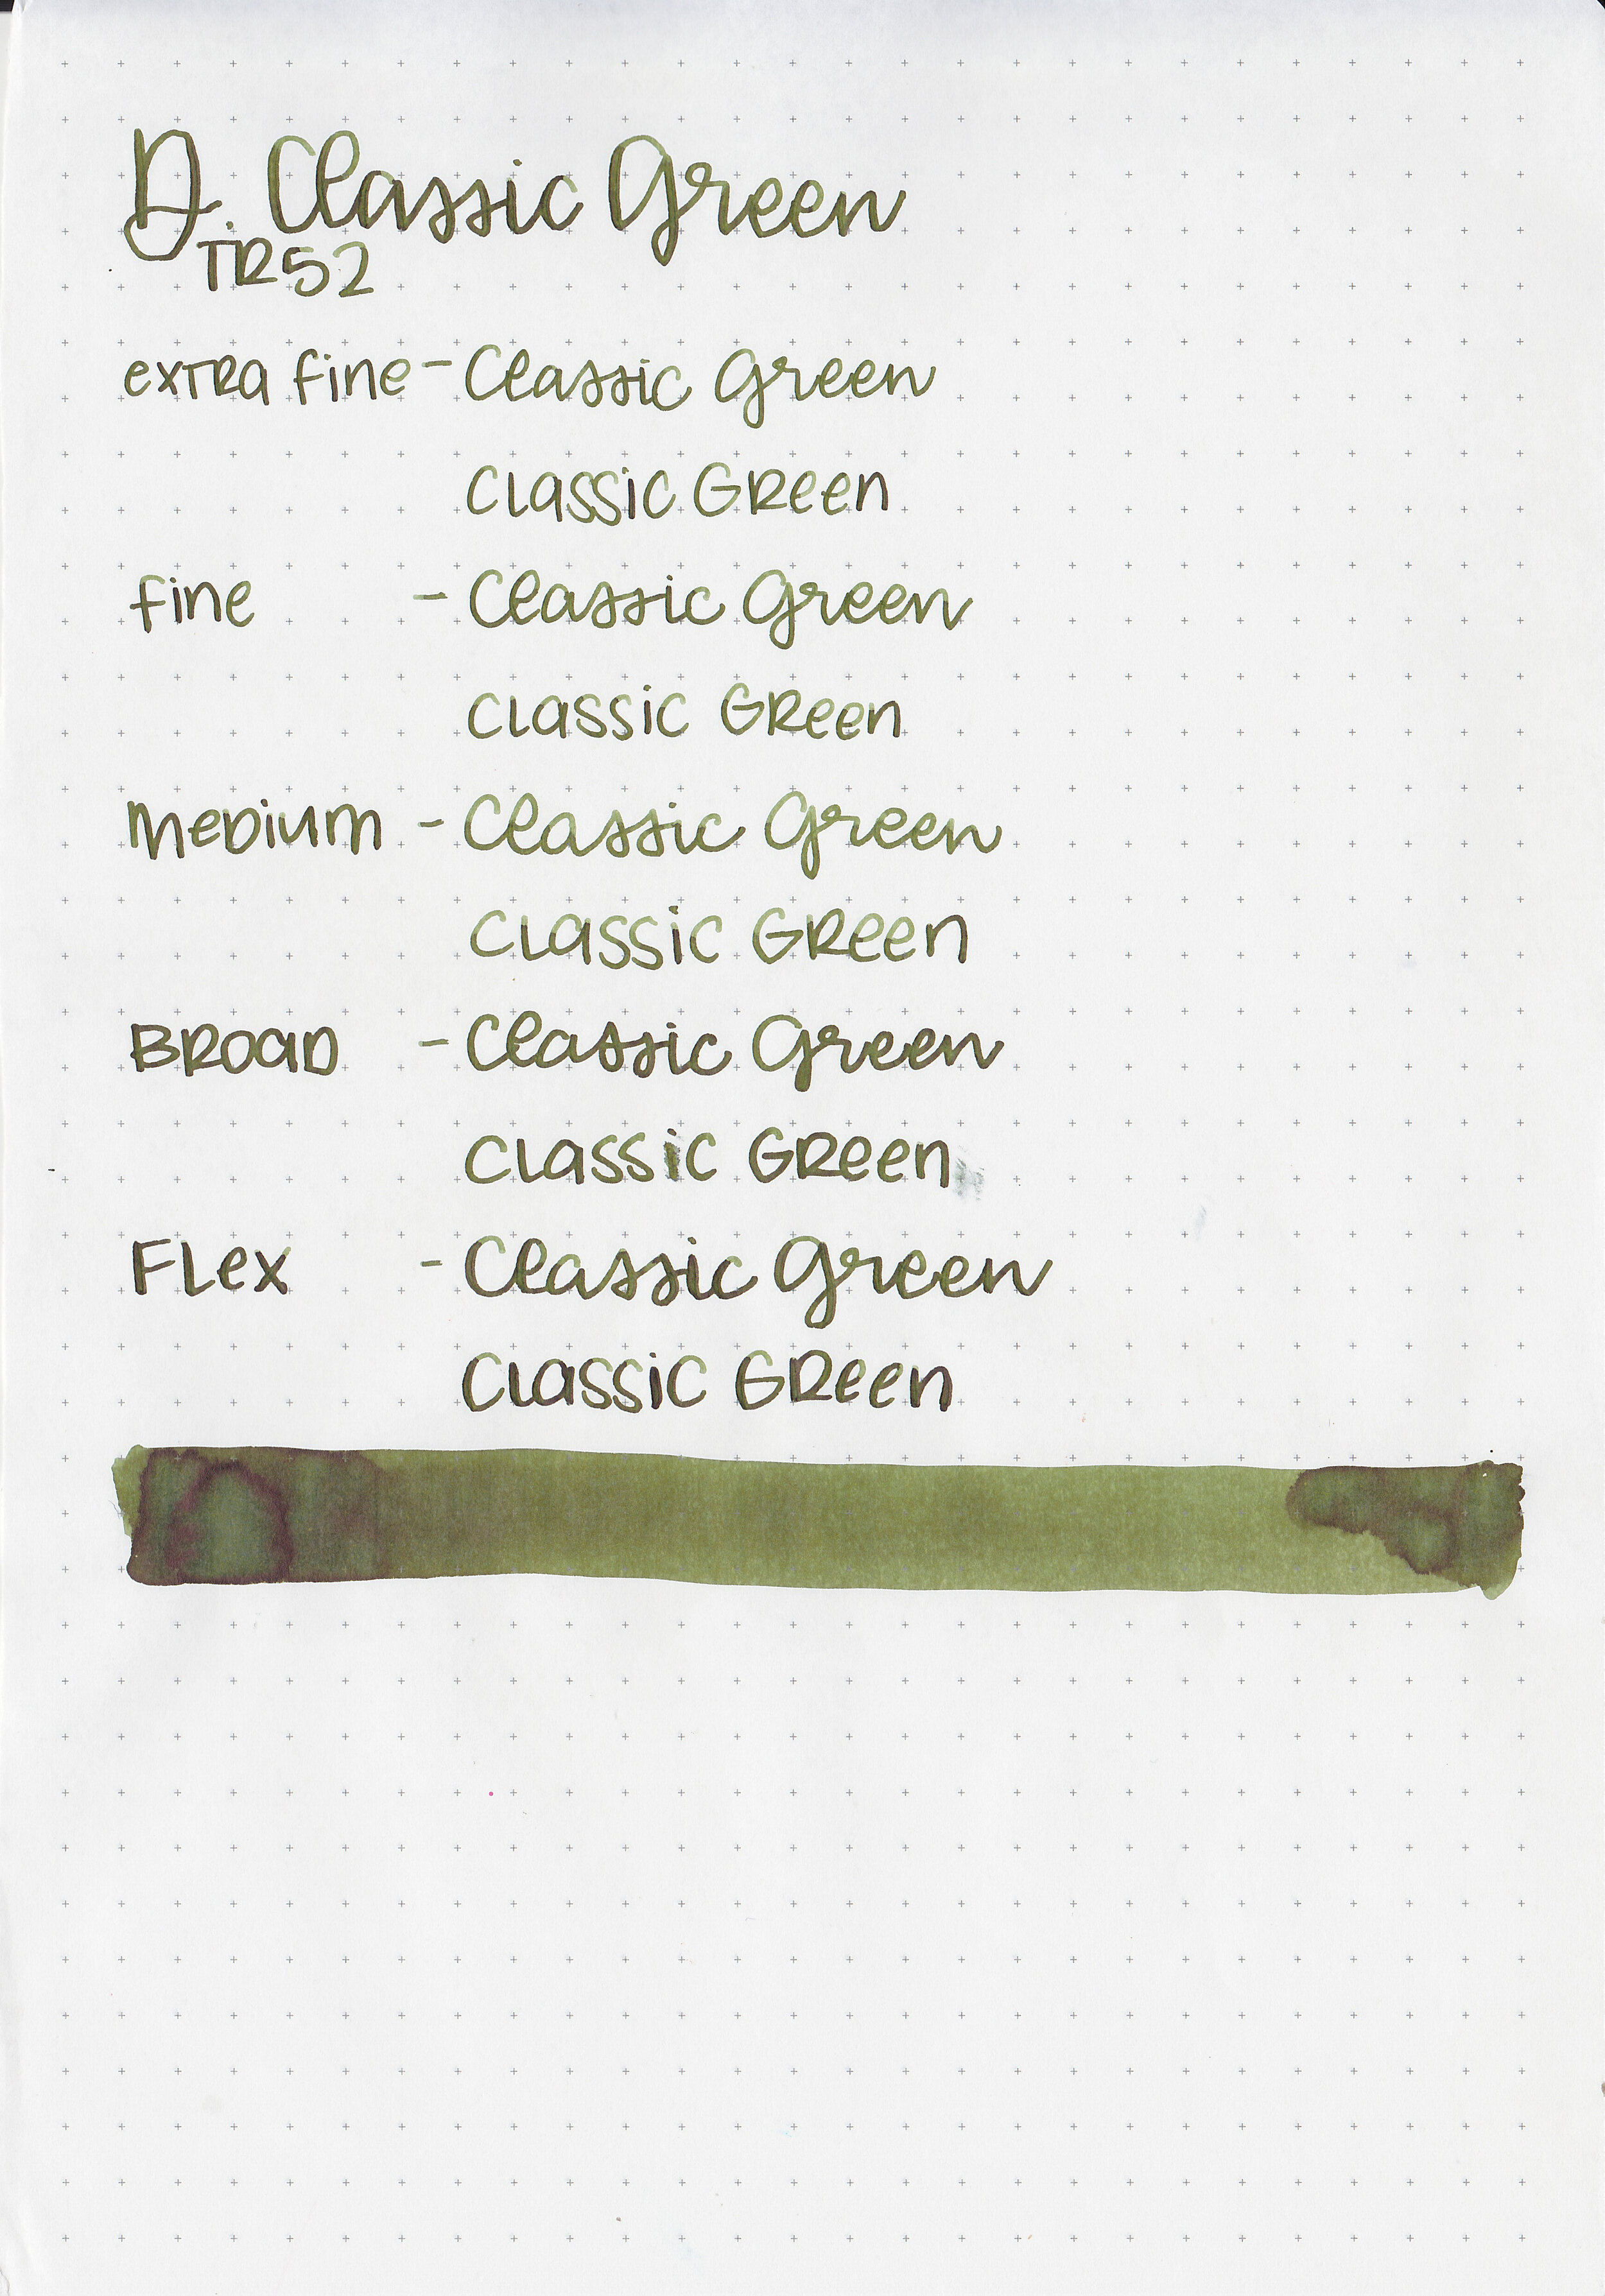 D. Classic Green
TR52
extra fine - Classic Green
Classic Green
fine - Classic Green
Classic Green
Medium - Classic Green
Classic Green
Broad - Classic Green
Classic Green
Flex - Classic Green
Classic Green